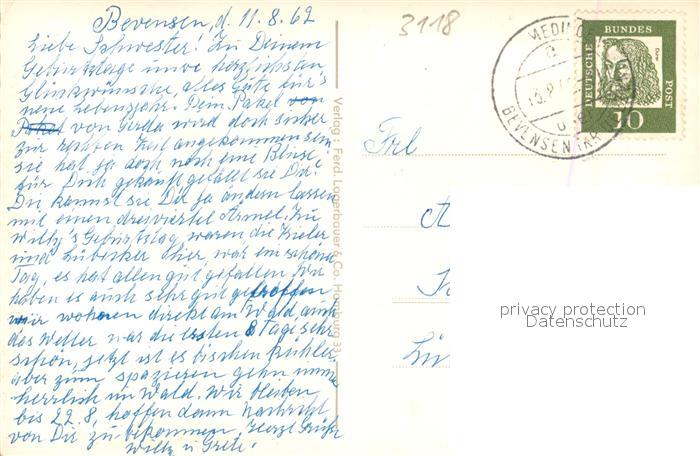 Bevensen, d. 11.8.62
Liebe Schwester! Zu Deinem
Geburtstage unsre herzlichsten
Glückwünsche, alles Gute für's
neue Lebensjahr. Dem Paket von
Paket von Gerda wird doch sicher
zur rechten Zeit angekommen sein
sie hat ja doch noch eine Bluse
für Dich gekauft gefällt sie Dir?
Du kannst sie Dir ja ändern lassen
mit einen dreiviertel Ärmel. Zu
Willy's Geburtstag, waren die Kieler
und Lübecker hier, war ein schöner
Tag, es hat allen gut gefallen. Wir
haben es auch sehr gut getroffen
wir wohnen direkt am Wald, auch
das Wetter war die ersten 8 Tage sehr
schön, jetzt ist es bischen kühler,
aber zum spazieren gehn immer
herrlich im Wald. Wir bleiben
bis 22.8, hoffen dann Nachricht
von Dir zu bekommen. Herzl Grüße
Willy u Grete.
3118
Verlag: Ferd. Lagerbauer & Co., Hamburg 33
MEDINGEN
BEVENSEN
DEUTSCHE BUNDES POST
10
Frl
privacy protection
Datenschutz